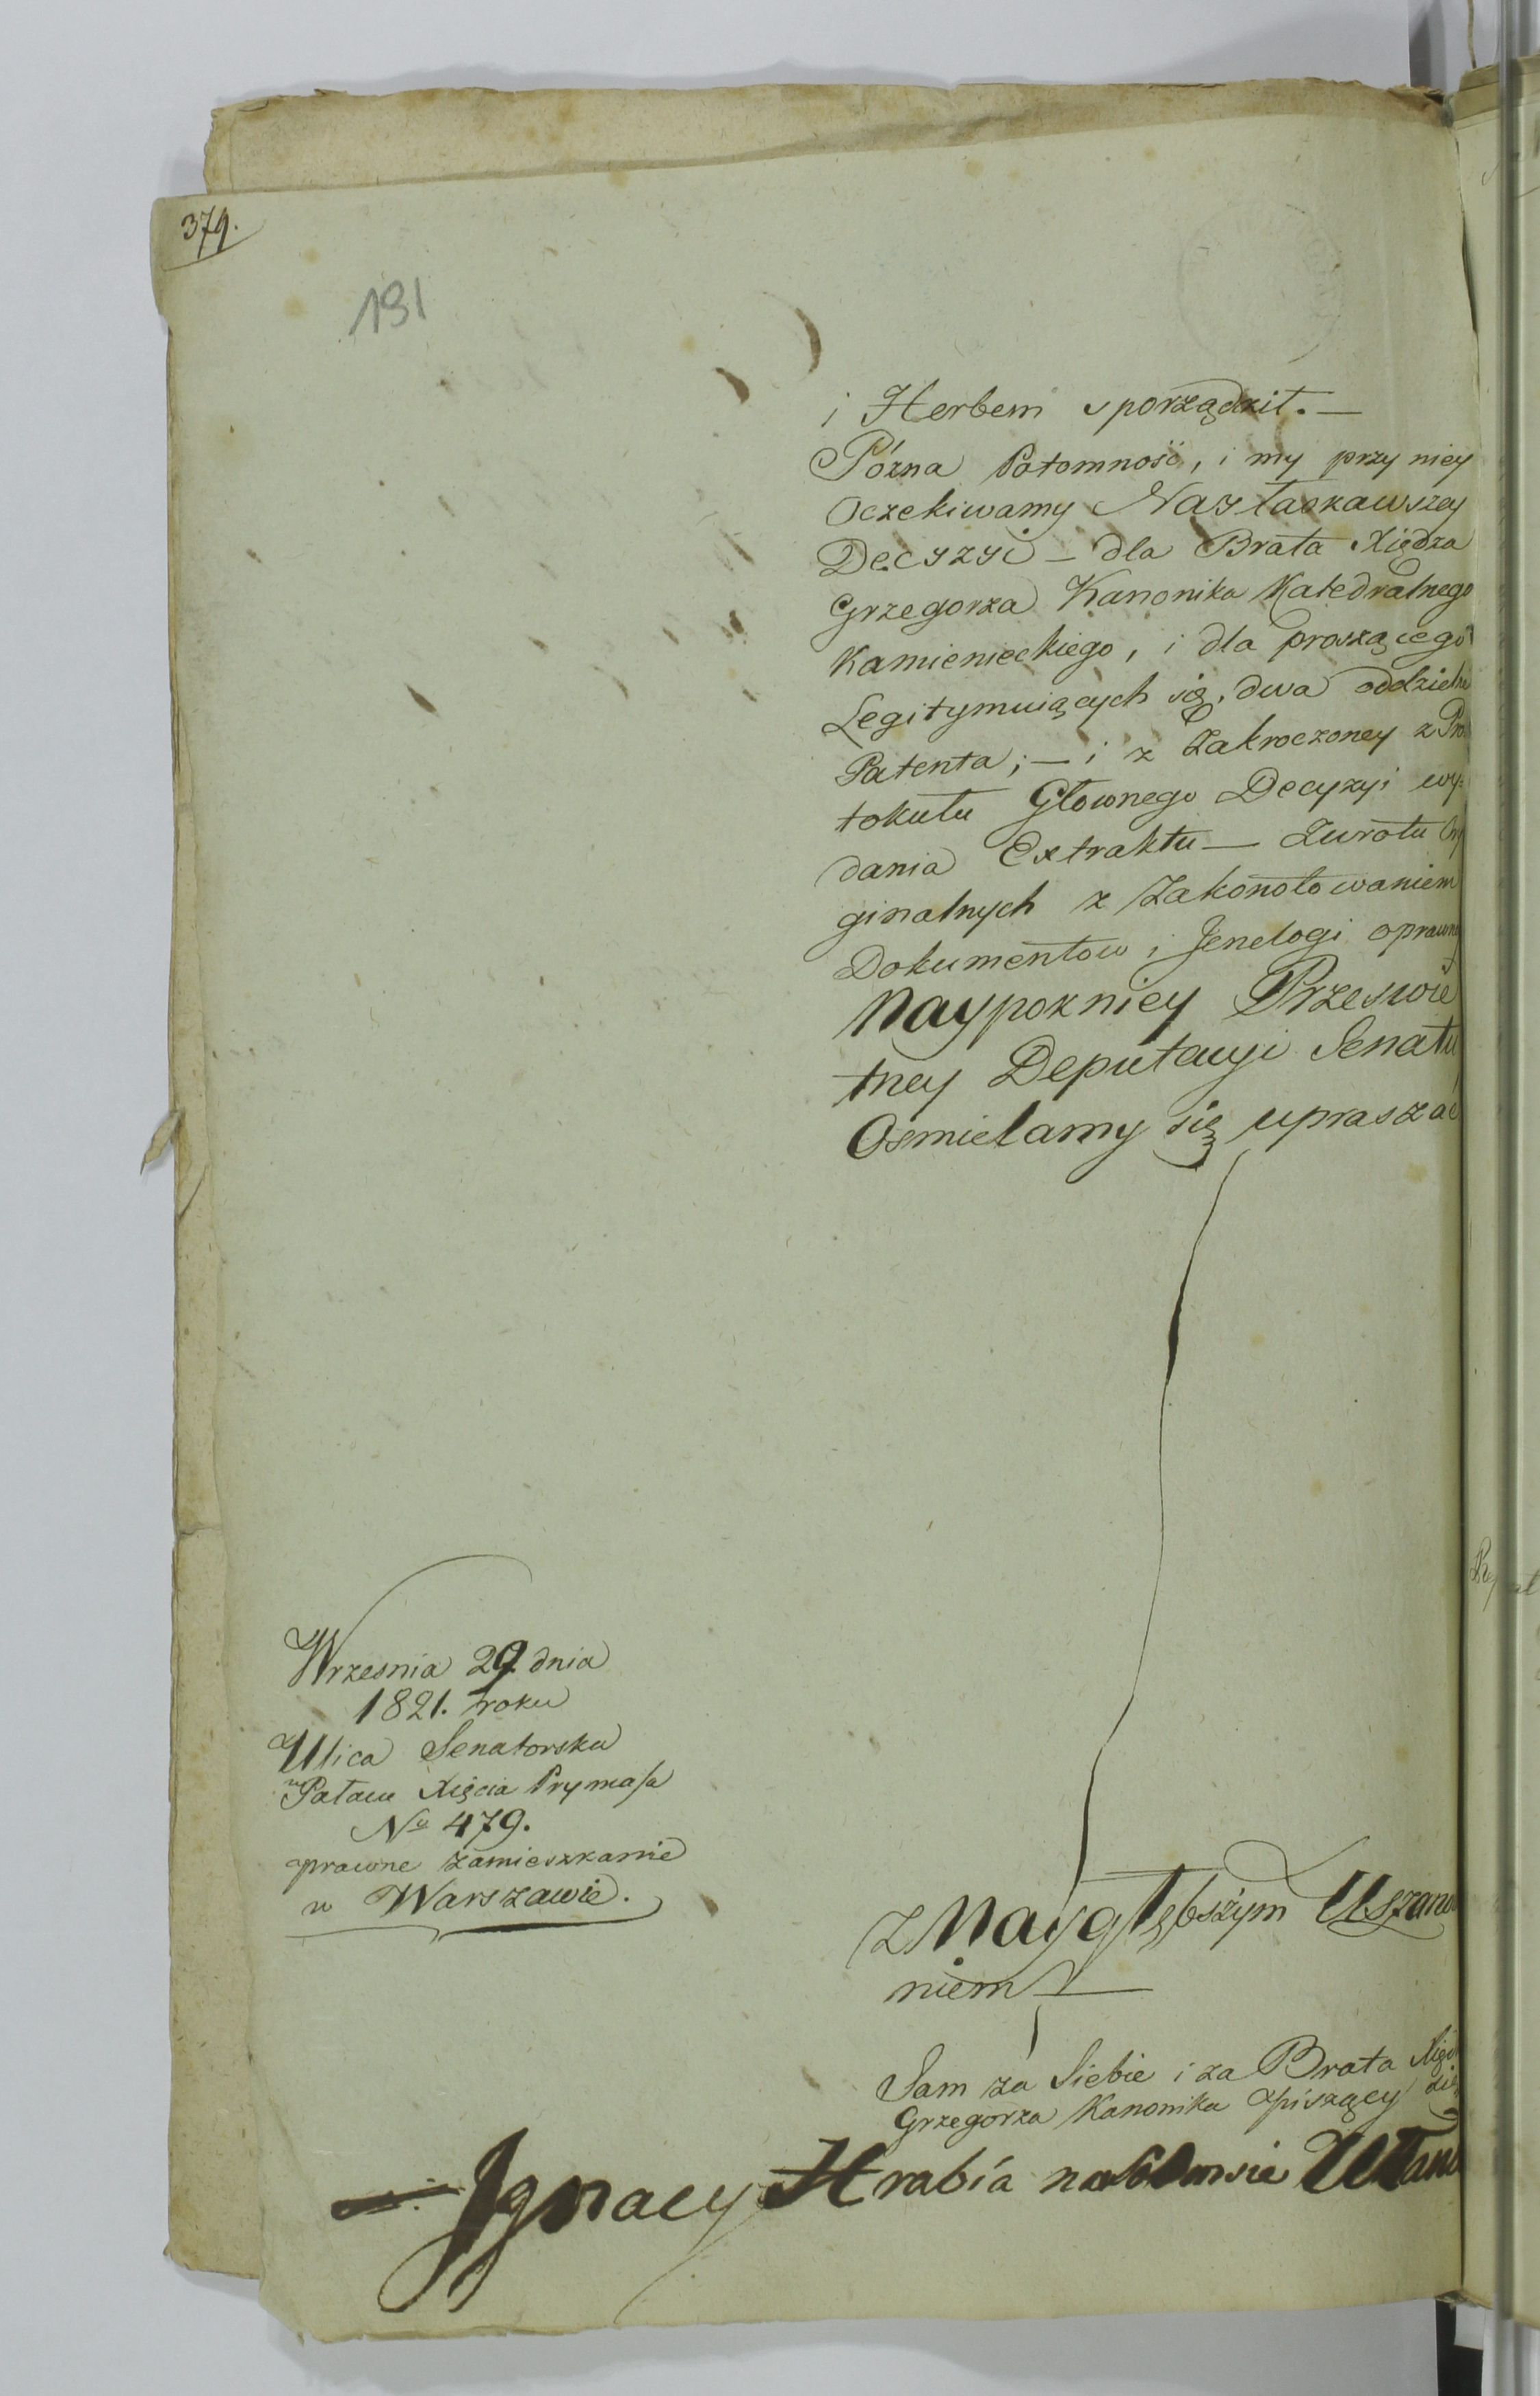 379.
191
i Herbem sporządził. —
Pózna Potomność, i my przy niey
Oczekiwamy Nayłaskawszey
Decyzyi — dla Brata Xiędza
Grzegorza Kanonika Katedralnego
Kamienieckiego, i dla proszącego
Legitymuiących się, dwa oddzielne
Patenta; — i z Zakroczoney z Pro
tokułu Głownego Decyzyi wy=
dania Extraktu — Zwrotu Ory
ginalnych z Zakonotowaniem
Dokumentow, Jenelogi oprawney
Naypokniey Przeswie
tney Deputacyi Senatu
Osmielamy się upraszać
Wrzesnia 29. dnia
1821. roku
Ulica Senatorska
w Pałacu Xięcia Prymasa
No 479.
prawne zamieszkanie
w Warszawie.
Z Naygłębszym Uszano
niem
Sam za Siebie i za Brata
Grzegorza Kanonika
Ignacy Hrabia na